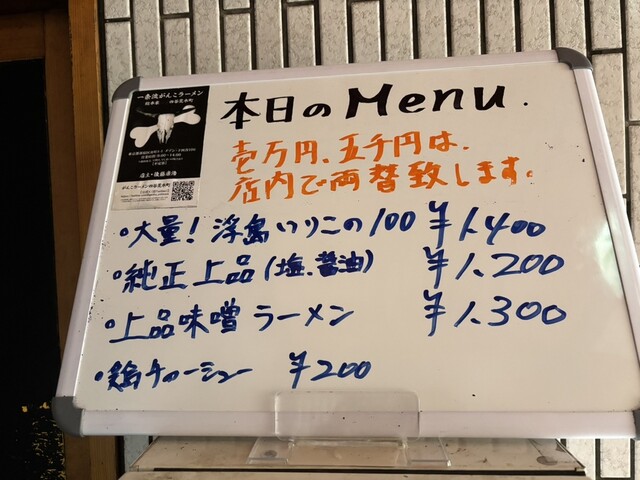 一条流がんこラーメン
総本家 四谷荒木町
本日のMenu.
壱万円、五千円は、
店内で両替致します。
・大量!浮島いりこの100 ¥1,400
・純正上品(塩、醤油) ¥1,200
・上品味噌ラーメン ¥1,300
・鶏チャーシュー ¥200